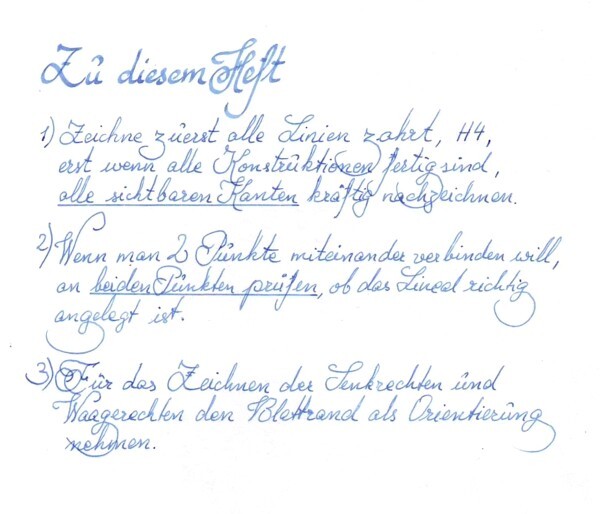 Zu diesem Heft
1) Zeichne zuerst alle Linien zahrt, H4,
erst wenn alle Konstruktionen fertig sind,
alle sichtbaren Kanten kräftig nachzeichnen.
2) Wenn man 2 Punkte miteinander verbinden will,
an beiden Punkten prüfen, ob das Lineal richtig
angelegt ist.
3) Für das Zeichnen der Senkrechten und
Waagerechten den Blattrand als Orientierung
nehmen.